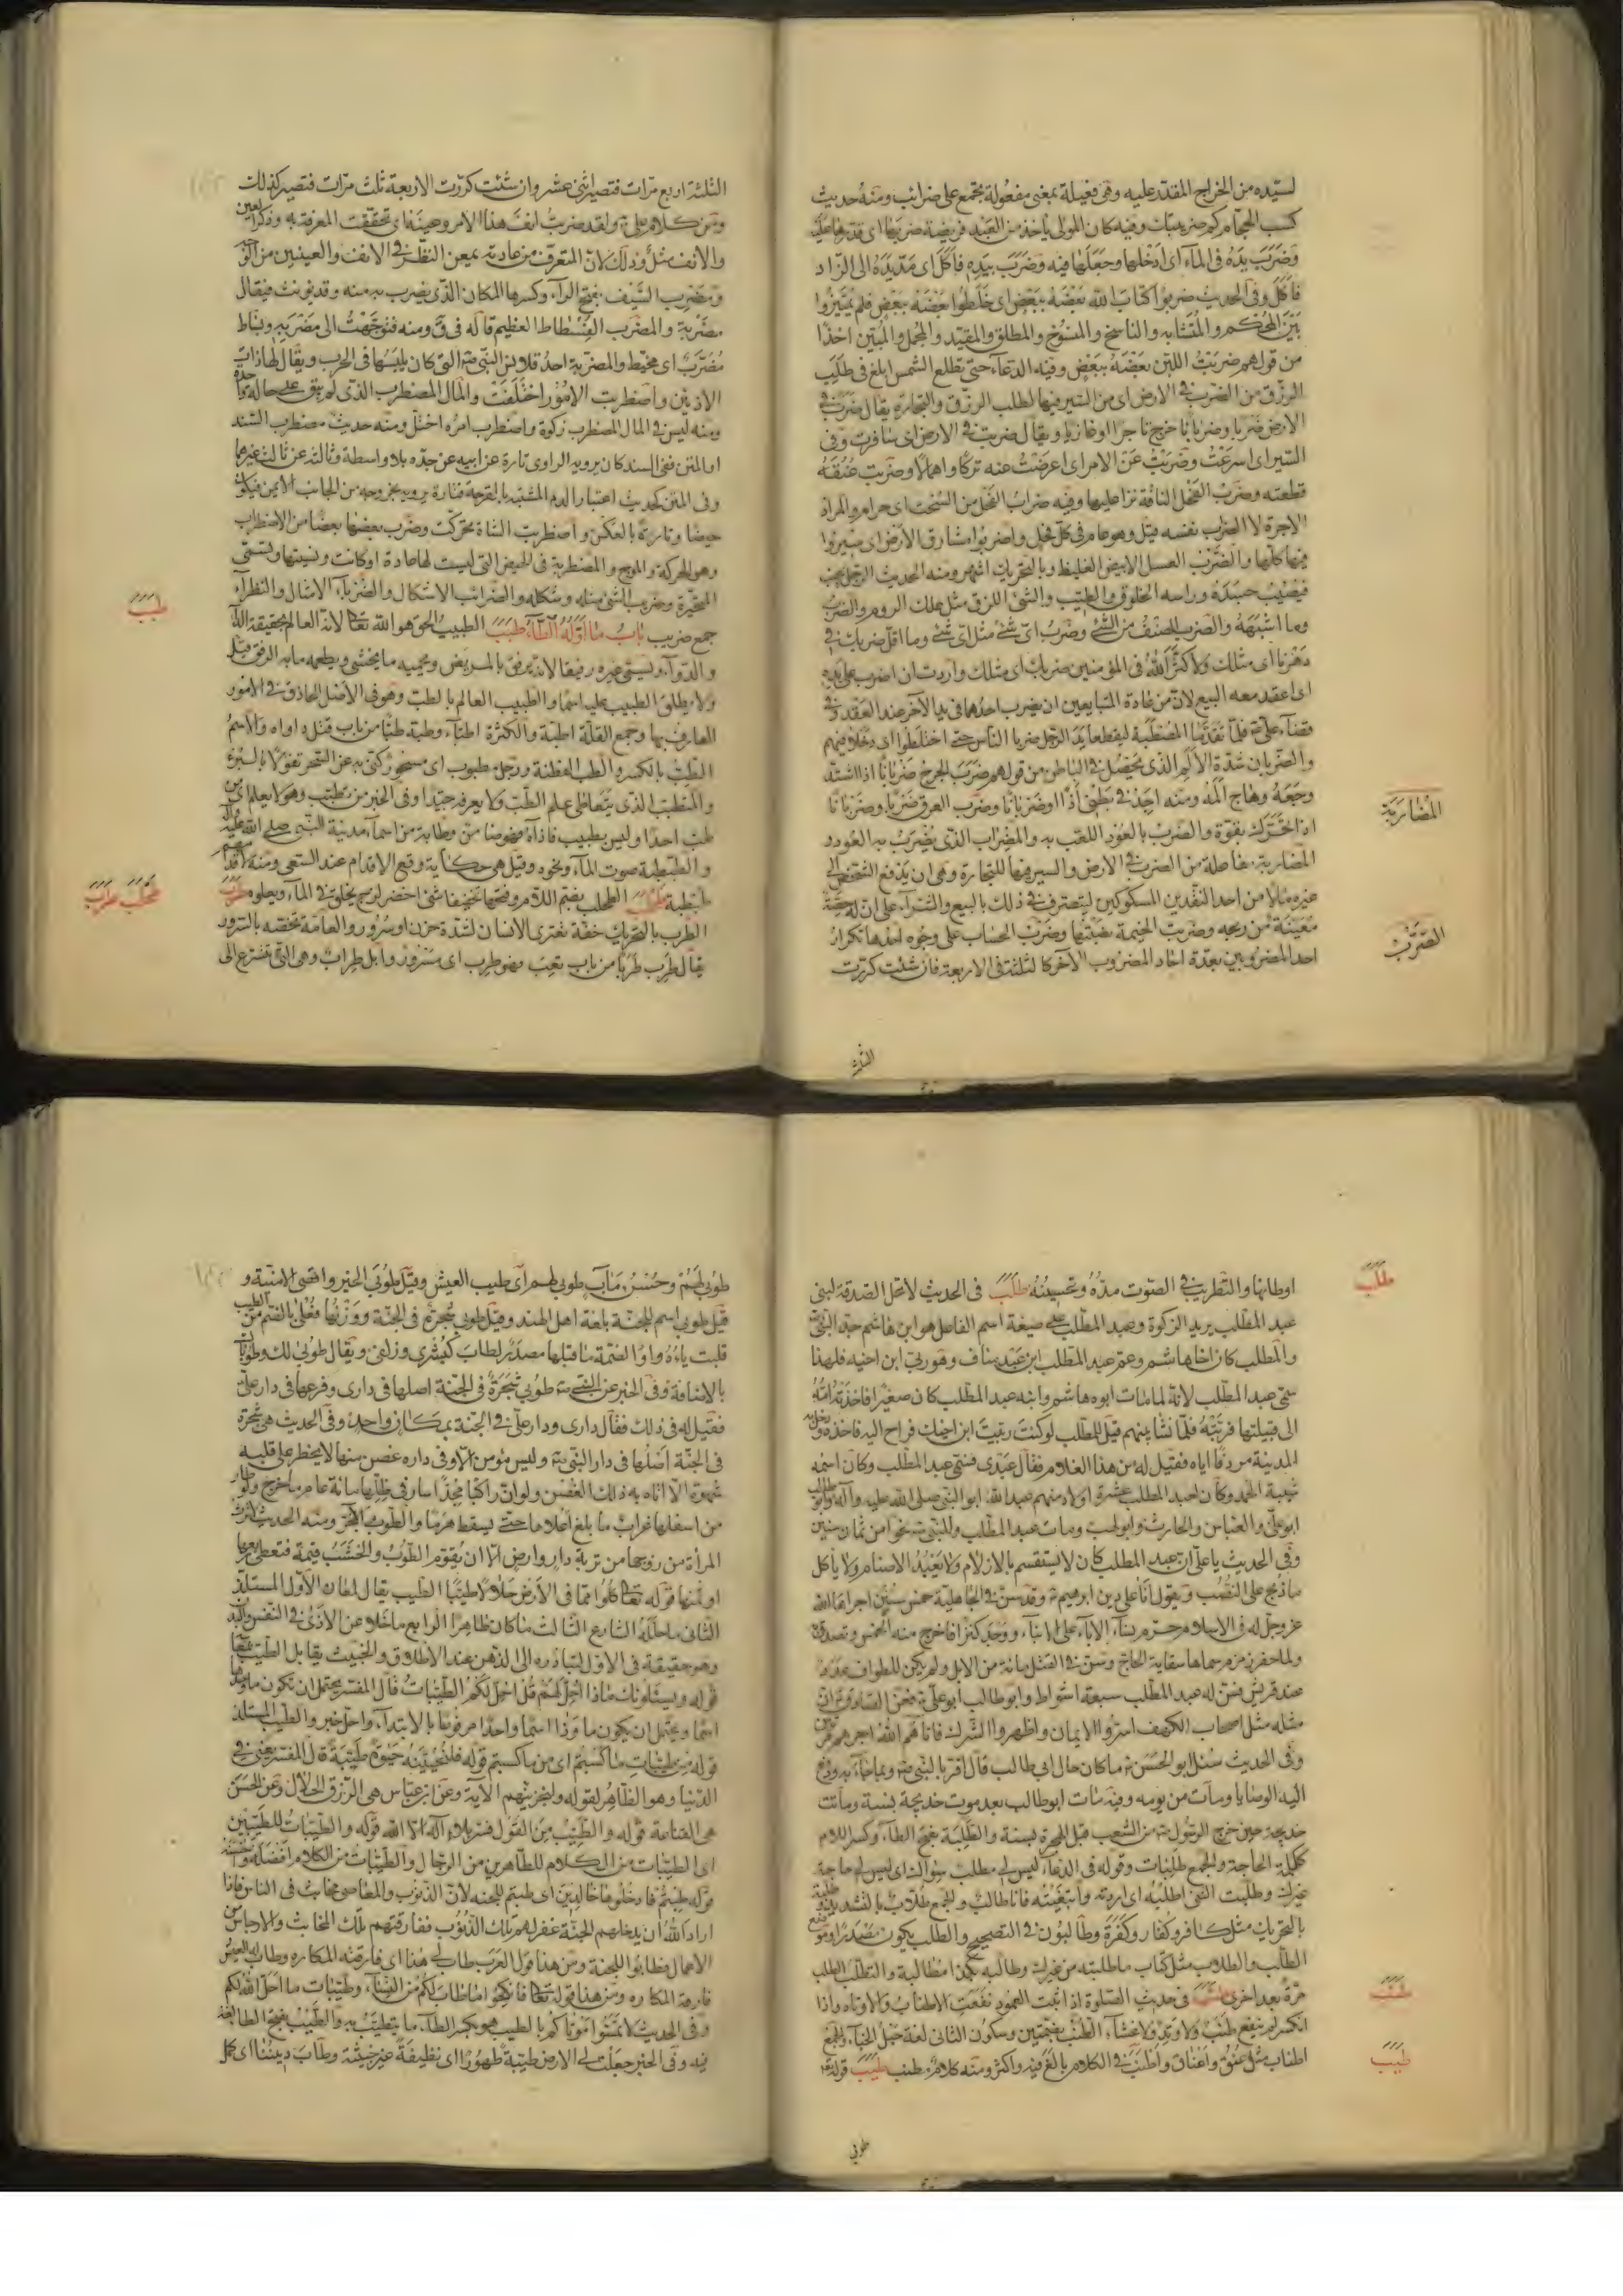 لسيّده من الخراج المقدّر عليه وهى فعيلة بمعنى مفعولة وتجمع على ضرائب ومنه حديث
كسب الحجّام كم ضريبتك وفيه كان المولى يأخذ من العبد فريضة ضربها اى قدرها عليه
وضرب يده فى الماء اى ادخلها وجعلها فيه وضرب بيده فاكل اى مدّ يده الى الزاد
فاكل وفى الحديث ضربوا كتاب الله بعضه ببعض اى خلطوا بعضه ببعض فلم يميزوا
بين المحكم والمتشابه والناسخ والمنسوخ والمطلق والمقيد والمجمل والمبين اخذا
من قولهم ضربت اللبن بعضه ببعض وفيه الدعاء حتى تطلع الشمس ابلغ فى طلب
الرزق من الضرب فى الارض اى من السير فيها لطلب الرزق والتجارة يقال ضرب فى
الارض ضربا وضربانا خرج تاجرا او غازيا ويقال ضربت فى الارض اى سافرت وفى
السير اى اسرعت وضربت عن الامر اى اعرضت عنه تركا واهمالا وضربت عنقه
قطعته وضرب الفحل الناقة نزا عليها وفيه ضراب الفحل من السحت اى حرام والمراد
الاجرة لا الضرب نفسه قيل وهو عام فى كل فحل واضربوا مشارق الارض اى سيروا
فيها كلها والضرب العسل الابيض الغليظ وبالتحريك اشهر ومنه الحديث
فيضيب جسده وراسه الخلوق والطيب والشئ اللزق مثل علك الروم والضرب
وما اشبهه والضرب الصنف من الشئ وضرب اى شئ مثل اى شئ وما اقل ضربك فى
دهرنا اى مثلك ولا كثر الله فى المؤمنين ضربك اى مثلك واردت ان اضرب على يده
اى اعقد معه البيع لان من عادة المتبايعين ان يضرب احدهما فى يد الآخر عند العقد وفى
قضاء على فلما تقدما المصطبة ليقطعا يد الرجل ضربا الناس حتى اختلطوا اى دخلا فيهم
والضربان شدة الالم الذى يحصل فى الباطن من قولهم ضرب الجرح ضربانا اذا اشتد
وجعه وهاج المه ومنه اجد فى بطنى اذا وضربانا وضرب العرق ضربا وضربانا
اذا تحرك بقوة والضرب بالعود اللعب به والمضراب الذى يضرب به العود و
المضاربة مفاعلة من الضرب فى الارض والسير فيها للتجارة وهى ان يدفع الشخص الى
غيره مالا من احد النقدين المسكوكين ليتصرف فى ذلك بالبيع والشراء على ان له حصة
معينة من ربحه وضربت الخيمة نصبتها وضرب الحساب على وجوه احدها تكرار
احد المضروبين بعدة احاد المضروب الآخر كالثلثة فى الاربعة فان شئت كررت
المضاربة
الضرب
الثلثة
الثلثة اربع مرات فتصير اثنى عشر وان شئت كررت الاربعة ثلث مرات فتصير كذلك
ومن كلام على ولقد ضربت انف هذا الامر وعينه اى تحققت المعرفة به وذكر العين
والانف مثل وذلك لان المتعرف من عادته يمعن النظر فى الانف والعينين من
ومضرب السيف بفتح الراء وكسرها المكان الذى يضرب به منه وقد يونث فيقال
مضربة والمضرب الفسطاط العظيم قاله فى ق ومنه فتوجهت الى مضربه وبساط
مضرب اى مخيط والمضربة احد قلانس النبى التى كان يلبسها فى الحرب ويقال لها ذات
الاذنين واضطربت الامور اختلفت والمال المضطرب الذى لم يبق على حالة واحدة
ومنه ليس فى المال المضطرب زكوة واضطرب امره اختل ومنه حديث مضطرب السند
او المتن ففى السند كان يرويه الراوى تارة عن ابيه عن جده بلا واسطة وثالثة عن ثالث غيرهما
وفى المتن كحديث اعتبار الدم المشتبه بالقرحة فتارة يرويه بخروجه من الجانب الايمن فيكون
حيضا وتارة بالعكس واضطربت الشاة تحركت وضرب بعضها بعضا من الاضطراب
وهو الحركة والموج والمضطربة فى الحيض التى ليست لها عادة او كانت ونسيتها وتسمى
المتحيرة وضرب الشئ مثله وشكله والضرائب الاشكال والضرباء الامثال والنظراء
جمع ضريب باب ما اوّله الطاء طبب الطبيب الحق هو الله تعالى لانه العالم بحقيقة الداء
والدواء ويسمى غيره رفيقا لانه يرفق بالمريض ويحميه ما يخشى ويطعمه ما به الرفق قيل
ولا يطلق الطبيب عليه اسما والطبيب العالم بالطب وهو فى الاصل الحاذق فى الامور
العارف بها وجمع القلة اطبة والكثرة اطباء وطبه طبا من باب قتل داواه والاسم
الطب بالكسر والطب الفطنة ورجل مطبوب اى مسحور كنى به عن السحر تفؤلا بالبرء
والمتطبب الذى يتعاطى علم الطب ولا يعرفه جيدا وفى الخبر من تطبب وهو لا يعلم اى من
طب احدا وليس بطبيب فاذاه فهو ضامن وطابة من اسماء مدينة النبى صلى الله عليه وآله
والطبطبة صوت الماء ونحوه وقيل هى حكاية وقع الاقدام عند السعى ومنه لاقدامهم
طبطبة طحلب الطحلب بضم اللام وفتحها تخفيفا شئ اخضر لزج يخلق فى الماء ويعلوه طرب
الطرب بالتحريك خفة تعترى الانسان لشدة حزن او سرور والعامة تخصه بالسرور
يقال طرب طربا من باب تعب فهو طرب اى مسرور وابل طراب وهى التى تفترع الى
طبب
طحلب طرب
اوطانها والتطريب فى الصوت مده وتحسينه طلب فى الحديث لا تحل الصدقة لبنى
عبد المطلب يريد الزكوة وعبد المطلب على صيغة اسم الفاعل هو ابن هاشم جد النبى
والمطلب كان اخا هاشم وعم عبد المطلب ابن عبد مناف وهو ربى ابن اخيه فلهذا
سمى عبد المطلب لانه لما مات ابوه هاشم وابنه عبد المطلب كان صغيرا فاخذته امه
الى قبيلتها فربته فلما نشأ بينهم قيل للمطلب لو كنت ربيت ابن اخيك فراح اليه فاخذه ودخل به
المدينة مردفا اياه فقيل له من هذا الغلام فقال عبدى فسمى عبد المطلب وكان اسمه
شيبة الحمد وكان لعبد المطلب عشرة اولاد منهم عبد الله ابو النبى صلى الله عليه وآله وابو طالب
ابو على والعباس والحارث وابو لهب ومات عبد المطلب وللنبى نحوا من ثمان سنين
وفى الحديث يا على ان عبد المطلب كان لا يستقسم بالازلام ولا يعبد الاصنام ولا يأكل
ما ذبح على النصب ويقول انا على دين ابرهيم وقد سن فى الجاهلية خمس سنن اجراها الله
عز وجل له فى الاسلام حرم نساء الآباء على الابناء ووجد كنزا فاخرج منه الخمس وتصدق به
ولما حفر زمزم سماها سقاية الحاج وسن فى القتل مائة من الابل ولم يكن للطواف عدد
عند قريش فسن له عبد المطلب سبعة اشواط وابو طالب ابو على فعن الصادق ان
مثله مثل اصحاب الكهف اسروا الايمان واظهروا الشرك فاتاهم الله اجرهم مرتين
وفى الحديث سئل ابو الحسن ما كان حال ابى طالب قال اقر بالنبى وبما جاء به ودفع
اليه الوصايا ومات من يومه وفيه مات ابو طالب بعد موت خديجة بسنة وماتت
خديجة حين خرج الرسول من الشعب قبل الهجرة بسنة والطلبة بفتح الطاء وكسر اللام
ككلمة الحاجة والجمع طلبات وقوله فى الدعاء ليس لى مطلب سواك اى ليس لى حاجة
غيرك وطلبت الشئ اطلبه اى اردته وابتغيته فانا طالب والجمع طلاب بالتشديد وطلبة
بالتحريك مثل كافر وكفار وكفرة وطالبون فى التصحيح والطلب يكون مصدرا وموضع
الطلب والطلاب مثل كتاب ما طلبته من غيرك وطالبه بكذا مطالبة والتطلب الطلب
مرة بعد اخرى طنب فى حديث الصلوة اذا ثبت العمود نفعت الاطناب والاوتاد واذا
انكسر لم ينفع طنب ولا وتد ولا غشاء الطنب بضمتين وسكون الثانى لغة حبل الخباء والجمع
اطناب مثل عنق واعناق واطنب فى الكلام بالغ فيه واكثر ومنه كلام مطنب طيب قوله تعالى
طلب
طنب
طيب
طوبى
طوبى لهم وحسن مآب طوبى لهم اى طيب العيش وقيل طوبى الخير واقصى الامنية و
قيل طوبى اسم للجنة بلغة اهل الهند وقيل طوبى شجرة فى الجنة ووزنها فعلى بالضم من الطيب
قلبت ياءه واوا لضمة ما قبلها مصدر لطاب كبشرى وزلفى ويقال طوبى لك وطوباك
بالاضافة وفى الخبر عن النبى طوبى شجرة فى الجنة اصلها فى دارى وفرعها فى دار على
فقيل له فى ذلك فقال دارى ودار على فى الجنة بمكان واحد وفى الحديث هى شجرة
فى الجنة اصلها فى دار النبى وليس مؤمن الا وفى داره غصن منها لا يخطر على قلبه
شهوة الا اتاه به ذلك الغصن ولو ان راكبا مجدا سار فى ظلها مائة عام ما خرج ولو طار
من اسفلها غراب ما بلغ اعلاها حتى يسقط هرما والطوب الآجر ومنه الحديث
المرأة من زوجها من تربة دار وارض الا ان يقوم الطوب والخشب قيمة فتعطى ربعها
او ثمنها قوله تعالى كلوا مما فى الارض حلالا طيبا الطيب يقال لمعان الاول المستلذ
الثانى ما حلله الشارع الثالث ما كان طاهرا الرابع ما خلا عن الاذى فى النفس والبدن
وهو حقيقة فى الاول لتبادره الى الذهن عند الاطلاق والخبيث يقابل الطيب
قوله ويسئلونك ماذا احل لهم قل احل لكم الطيبات قال المفسر يحتمل ان تكون ما وحدها
اسما ويحتمل ان يكون ما وذا اسما واحدا مرفوعا بالابتداء واحل خبر والطيب المستلذ
قوله من طيبات ما كسبتم اى من ما كسبتم قوله فلنحيينه حيوة طيبة قال المفسر يعنى فى
الدنيا وهو الظاهر لقوله ولنجزينهم الآية وعن ابن عباس هى الرزق الحلال وعن الحسن
هى القناعة قوله والطيب من القول فسر بلا اله الا الله قوله والطيبات للطيبين
اى الطيبات من الكلام للطاهرين من الرجال والطيبات من الكلام افضله واحسنه
قوله طبتم فادخلوها خالدين اى طبتم للجنة لان الذنوب والمعاصى مخابث فى الناس فاذا
اراد الله ان يدخلهم الجنة غفر لهم تلك الذنوب ففارقتهم تلك المخابث والارجاس من
الاعمال فطابوا للجنة ومن هذا قول العرب طاب لى هذا اى فارقته المكاره وطاب له العيش
فارقه المكاره ومن هذا قوله تعالى فانكحوا ما طاب لكم من النساء وطيبات ما احل الله لكم
وفى الحديث لا تمسوا موتاكم بالطيب هو بكسر الطاء ما يتطيب به والطيب بفتح الطاء لغة
فيه وفى الخبر جعلت لى الارض طيبة طهورا اى نظيفة غير خبيثة وطاب ديننا اى كمل